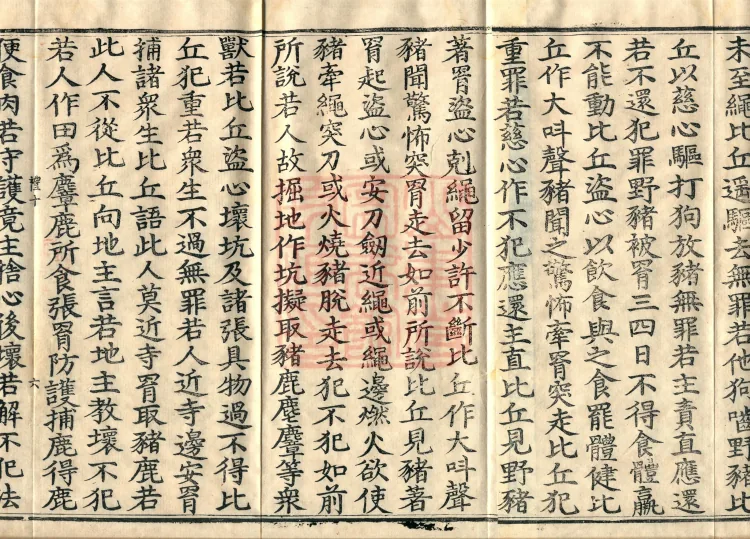 未至繩比丘遥驅去無罪若他狗嚙野豬比
丘以慈心驅打狗放豬無罪若主責直應還
若不還犯罪野豬被罥三四日不得食體羸
不能動比丘盜心以飲食與之食罷體健比
丘作大呌聲豬聞之驚怖牽罥突走比丘犯
重罪若慈心作不犯應還主直比丘見野豬
著罥盜心剋繩留少許不斷比丘作大呌聲
豬聞驚怖突罥走去如前所說比丘見豬著
罥起盜心或安刀劒近繩或繩邊燃火欲使
豬牽繩突刀或火燒豬脫走去犯不犯如前
所說若人故掘地作坑擬取豬鹿麈麞等衆
獸若比丘盜心壞坑及諸張具物過不得比
丘犯重若衆生不過無罪若人近寺邊安罥
捕諸衆生比丘語此人莫近寺罥取豬鹿若
此人不從比丘向地主言若地主教壞不犯
若人作田爲麞鹿所食張罥防護捕鹿得鹿
禮十
六
便食肉若守護竟主捨心後壞若解不犯法